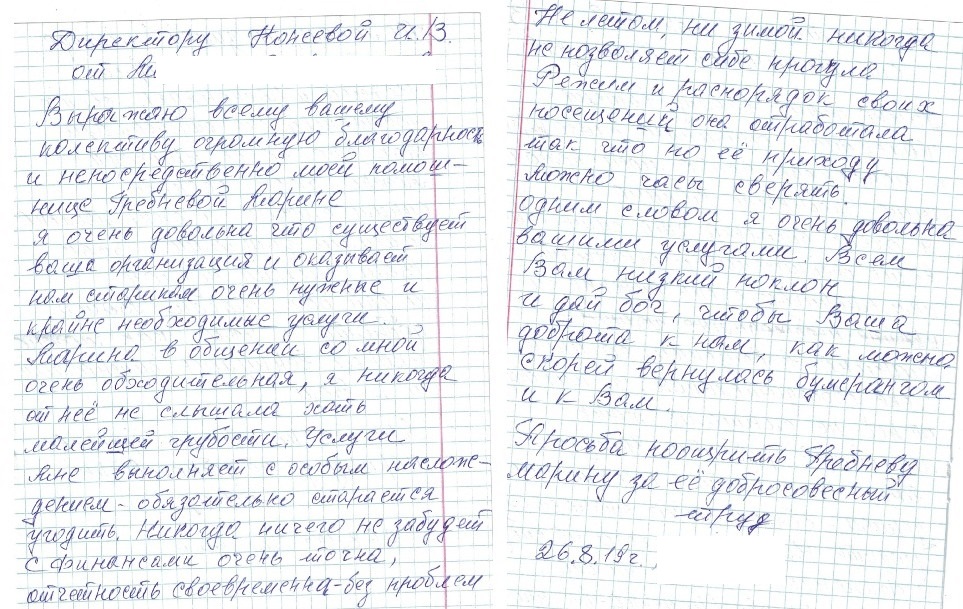 Директору Ножевой И.В.
от Ли
Вырыжаю всему вашему
колективу огромную благодарность
и непосредственно моей помощ-
нице Гребневой Марине
я очень довольна что существует
ваша организация и оказывает
нам старикам очень нужные и
крайне необходимые услуги.
Марина в общении со мной
очень обходительная, я никогда
от неё не слышала хоть
малейшей грубости. Услуги
мне выполняет с особым наслож-
дением - обязательно старается
угодить. Никогда ничего не забудет
с финансами очень точна,
отчетность своевременна - без проблем
Не летом, ни зимой никогда
не позволяет себе прогула
Режим и распорядок своих
посещений она отработала
так что по её приходу
можно часы сверять.
одним словом я очень довольна
вашими услугами. Всем
Вам низкий поклон
и дай бог, чтобы Ваша
доброта к нам, как можно
скорей вернулась бумерангом
и к Вам.
Просьба поощрить Гребневу
Марину за её добросовесный
труд
26.8.19г.